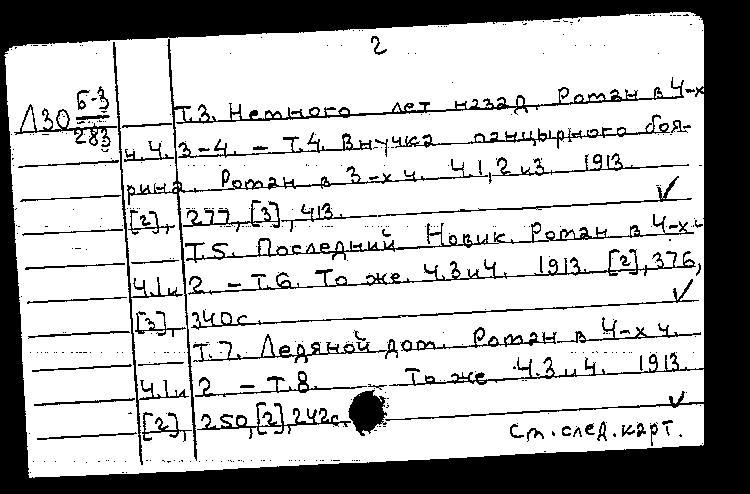 2
Л30 Б-3/283
Т.3. Немного лет назад. Роман в 4-х
ч. Ч. 3-4. – Т.4. Внучка панцырного боя-
рина. Роман в 3-х ч. Ч.1,2 и 3. 1913.
[2], 277, [3], 413.
Т.5. Последний Новик. Роман в 4-х ч
Ч.1 и 2. – Т.6. То же. Ч.3 и 4. 1913. [2], 376,
[3], 340 с.
Т.7. Ледяной дом. Роман в 4-х ч.
Ч.1 и 2 – Т.8. То же Ч.3 и 4. 1913.
[2], 250, [2], 242 с.
См. след. карт.